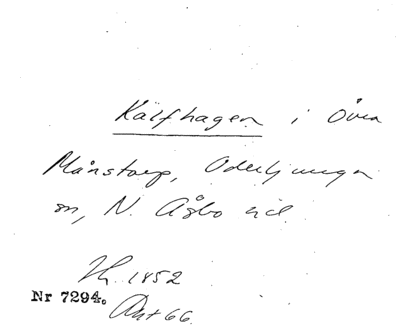 Kalfhagen i Övra
Månstorp, Oderljunga
sn, N. Åsbo hd.
Th. 1852
Nr 7294.
Ant 66.